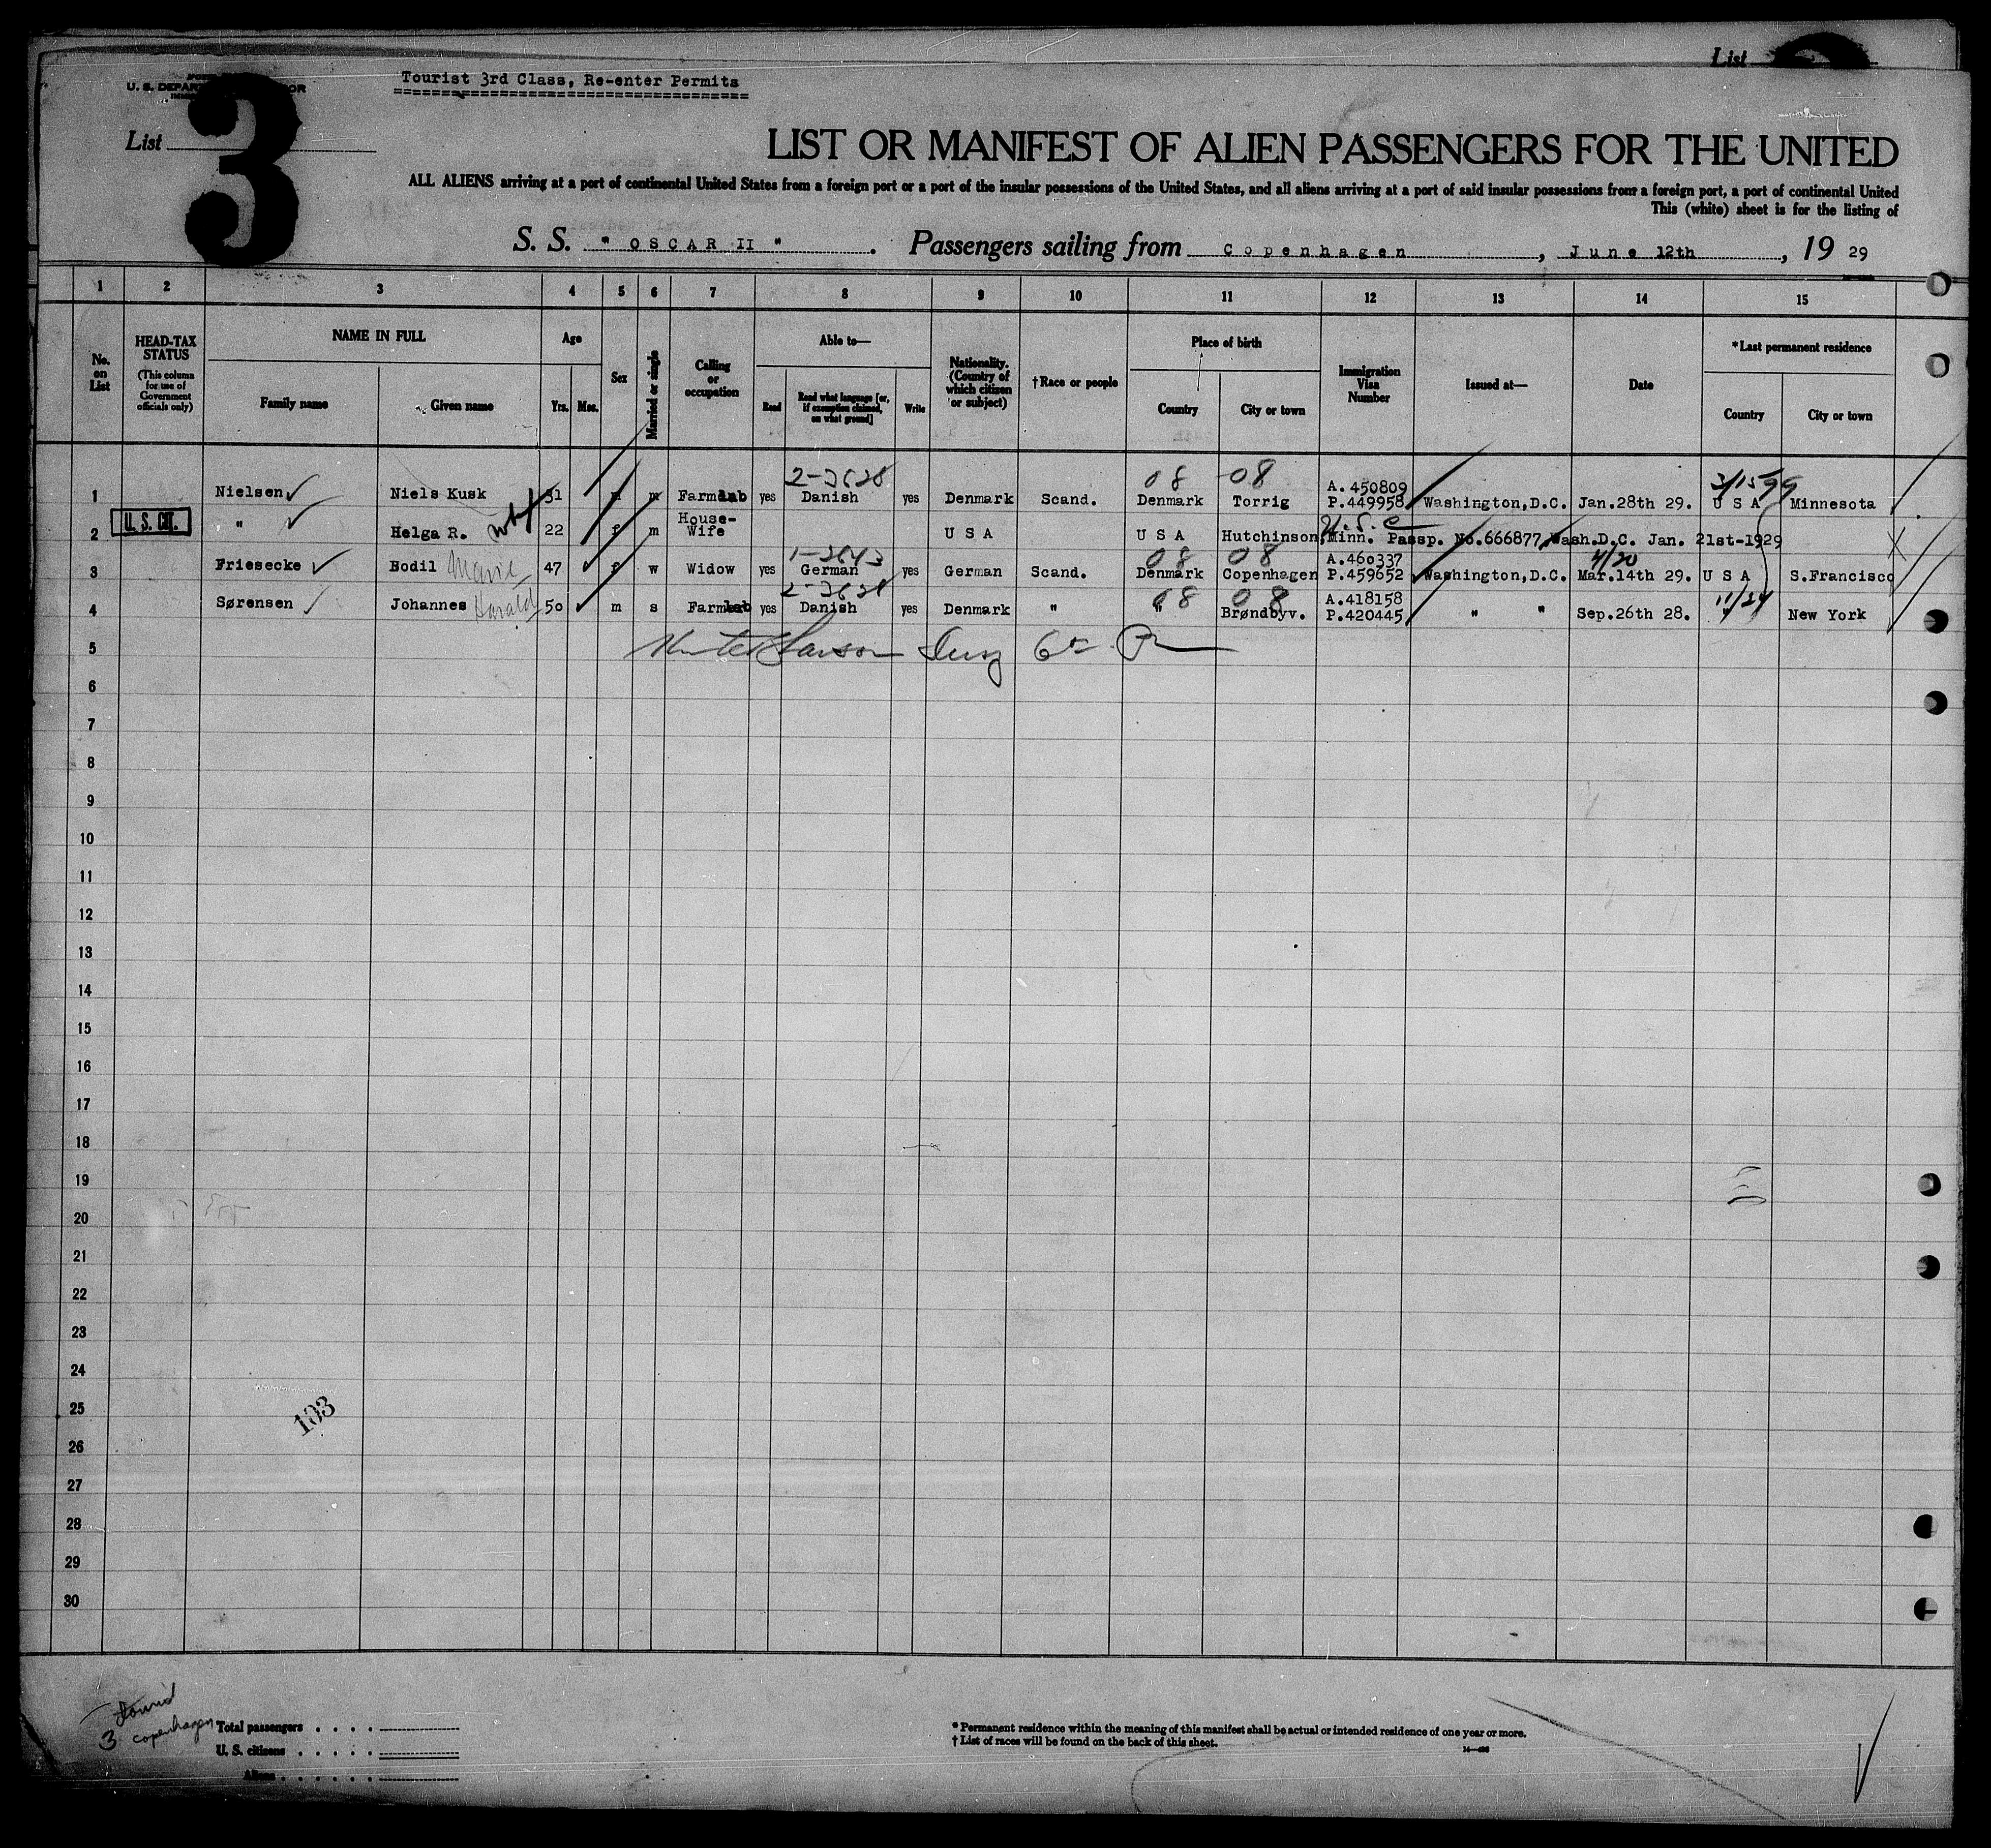 List
Tourist 3rd Class, Re-enter Permits
U. S. DEPAR OR
List 3
LIST OR MANIFEST OF ALIEN PASSENGERS FOR THE UNITED
ALL ALIENS arriving at a port of continental United States from a foreign port or a port of the insular possessions of the United States, and all aliens arriving at a port of said insular possessions from a foreign port, a port of continental United
This (white) sheet is for the listing of
S. S. " OSCAR II " . Passengers sailing from Copenhagen , June 12th , 19 29
1 2 3 4 5 6 7 8 9 10 11 12 13 14 15
No. on List
HEAD-TAX STATUS (This column for use of Government officials only)
NAME IN FULL
Family name Given name
Age
Yrs. Mos.
Sex
Married or single
Calling or occupation
Able to—
Read Read what language [or, if exemption claimed, on what ground] Write
Nationality. (Country of which citizen or subject)
†Race or people
Place of birth
Country City or town
Immigration Visa Number
Issued at—
Date
*Last permanent residence
Country City or town
2-3628 08 08 3/15 99
1 Nielsen Niels Kusk 31 m m Farmlab yes Danish yes Denmark Scand. Denmark Torrig A.450809 P.449958 Washington,D.C. Jan.28th 29. U S A Minnesota
U. S. CIT.
2 " Helga R. 22 f m House-Wife U S A U S A Hutchinson,Minn. Passp. No.666877,Wash.D.C. Jan. 21st-1929
U.S.C
1-2643 08 08 4/20
3 Friesecke Bodil Marie 47 f w Widow yes German yes German Scand. Denmark Copenhagen A.460337 P.459652 Washington,D.C. Mar.14th 29. U S A S.Francisco
2-3628 08 08 11/24
4 Sørensen Johannes Harald 50 m s Farmlab yes Danish yes Denmark " " Brøndbyv. A.418158 P.420445 " " Sep.26th 28. " New York
5
6
7
8
9
10
11
12
13
14
15
16
17
18
19
20
21
22
23
24
25
103
26
27
28
29
30
3 Copenhagen
Total passengers . . . .
U. S. citizens . . . . .
Aliens . . . . . .
* Permanent residence within the meaning of this manifest shall be actual or intended residence of one year or more.
† List of races will be found on the back of this sheet.